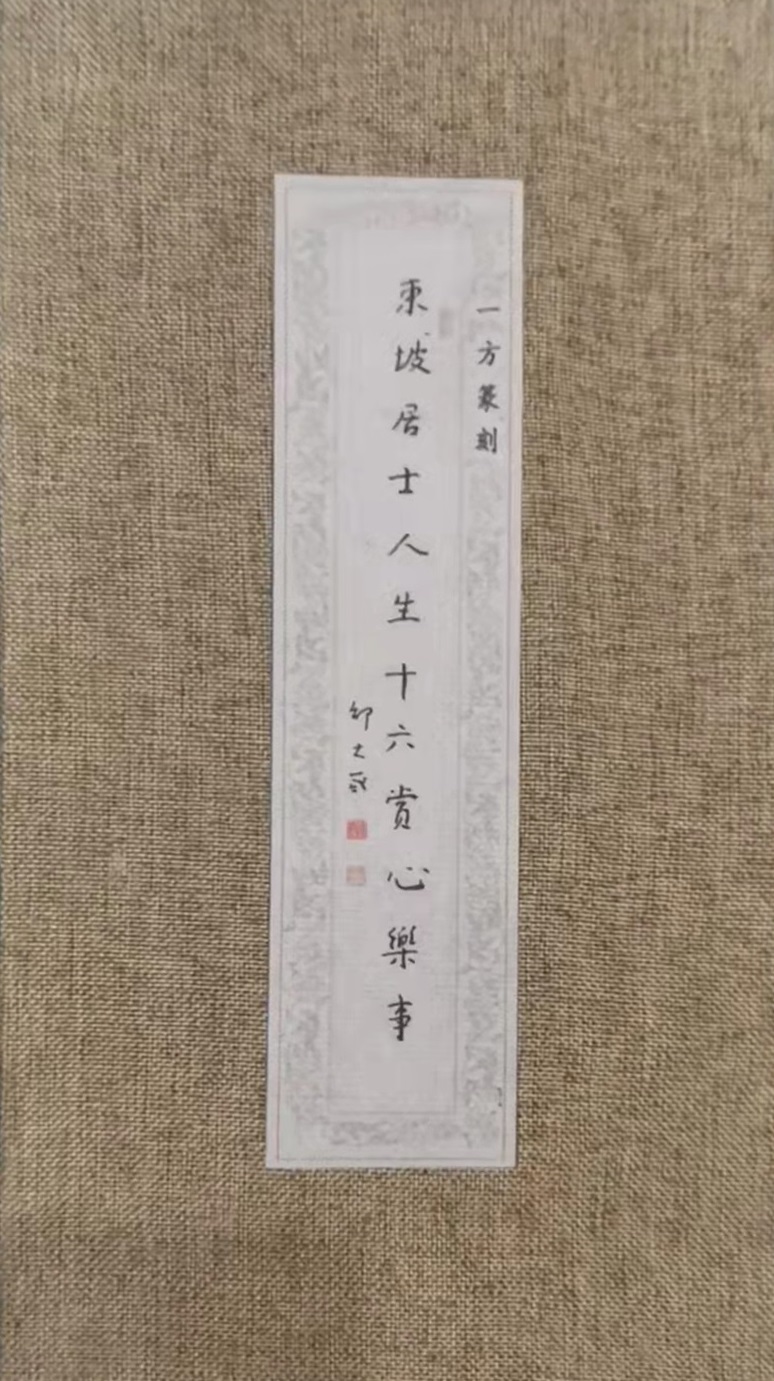 一方篆刻
東坡居士人生十六賞心樂事